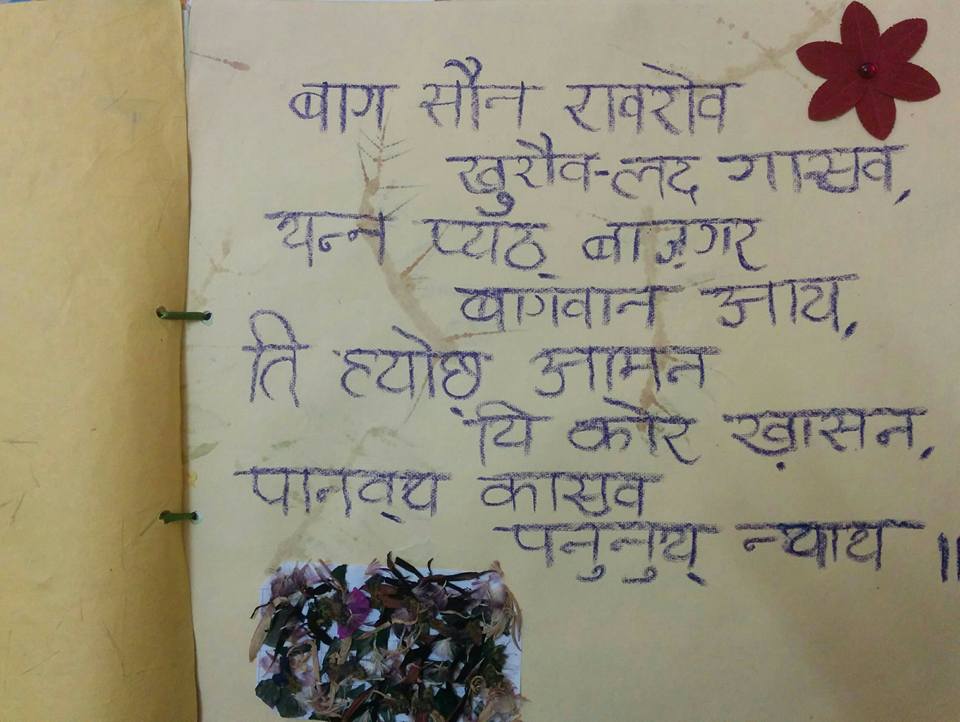 बाग सौन रावरोव
खुरौव-लद गासव,
यन्न प्यॅठ् बाज़गर
बागवान आय,
ति ह्योछ़ आमन
यि कोर ख़ासन,
पानव्य कासव
पनुनुय् न्याय ॥